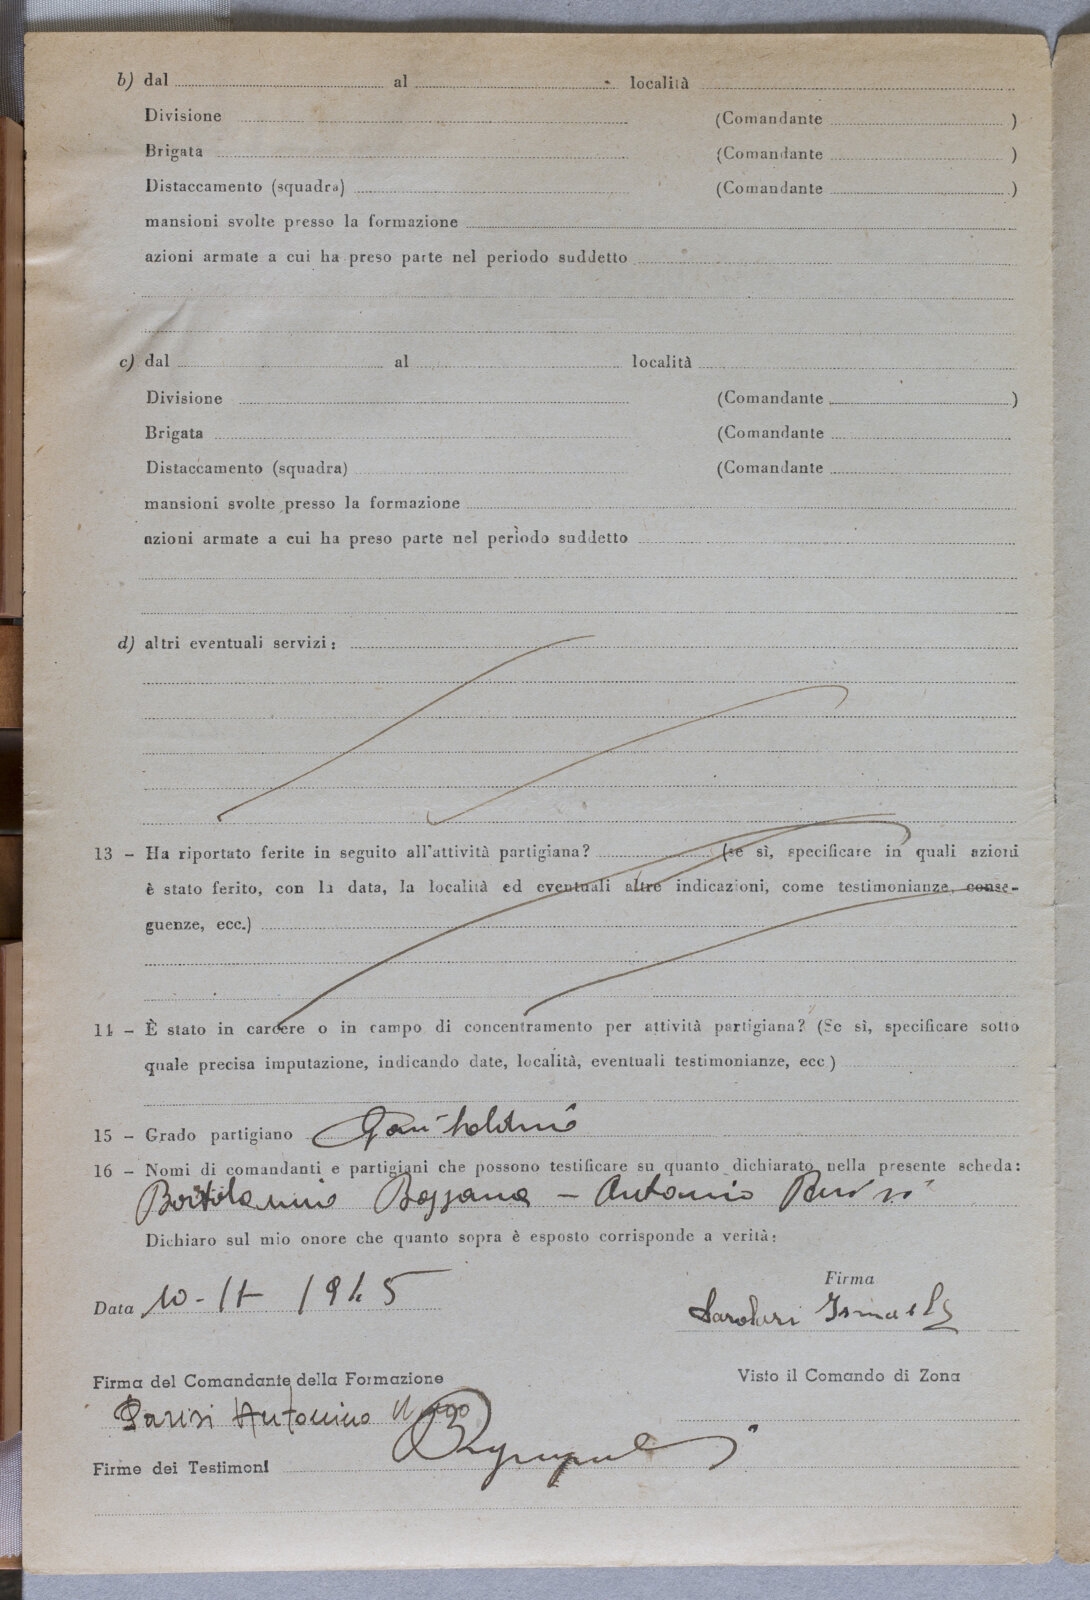 b) dal al località
Divisione (Comandante )
Brigata (Comandante )
Distaccamento (squadra) (Comandante )
mansioni svolte presso la formazione
azioni armate a cui ha preso parte nel periodo suddetto
c) dal al località
Divisione (Comandante )
Brigata (Comandante
Distaccamento (squadra) (Comandante
mansioni svolte presso la formazione
azioni armate a cui ha preso parte nel periodo suddetto
d) altri eventuali servizi:
13 – Ha riportato ferite in seguito all'attività partigiana? (se sì, specificare in quali azioni
è stato ferito, con la data, la località ed eventuali altre indicazioni, come testimonianze, conse-
guenze, ecc.)
14 – È stato in carcere o in campo di concentramento per attività partigiana? (Se sì, specificare sotto
quale precisa imputazione, indicando date, località, eventuali testimonianze, ecc )
15 – Grado partigiano Garibaldino
16 – Nomi di comandanti e partigiani che possono testificare su quanto dichiarato nella presente scheda:
Bortolamio Bozzana – Antonio
Dichiaro sul mio onore che quanto sopra è esposto corrisponde a verità:
Firma
Data 10-11- 1945
Firma del Comandante della Formazione Visto il Comando di Zona
Parisi Antonino
Firme dei Testimoni